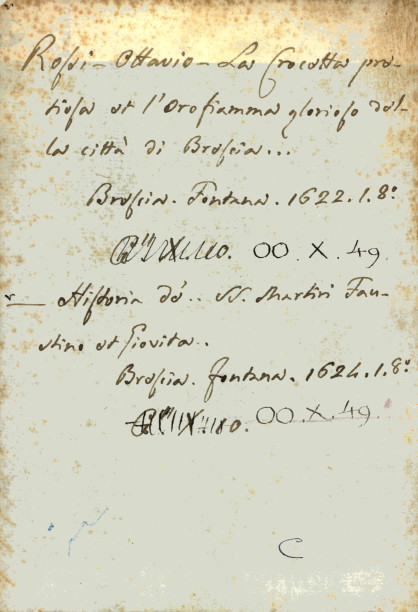 Rossi - Ottavio - La Crocetta pre-
tiosa et l'Orofiamma glorioso del-
la città di Brescia...
Brescia. Fontana. 1622. 1. 8.º
OO. X. 49
— Historia de'.. SS. Martiri Fau-
stino et Giovita..
Brescia. Fontana. 1624. 1. 8.º
OO. X. 49.
C